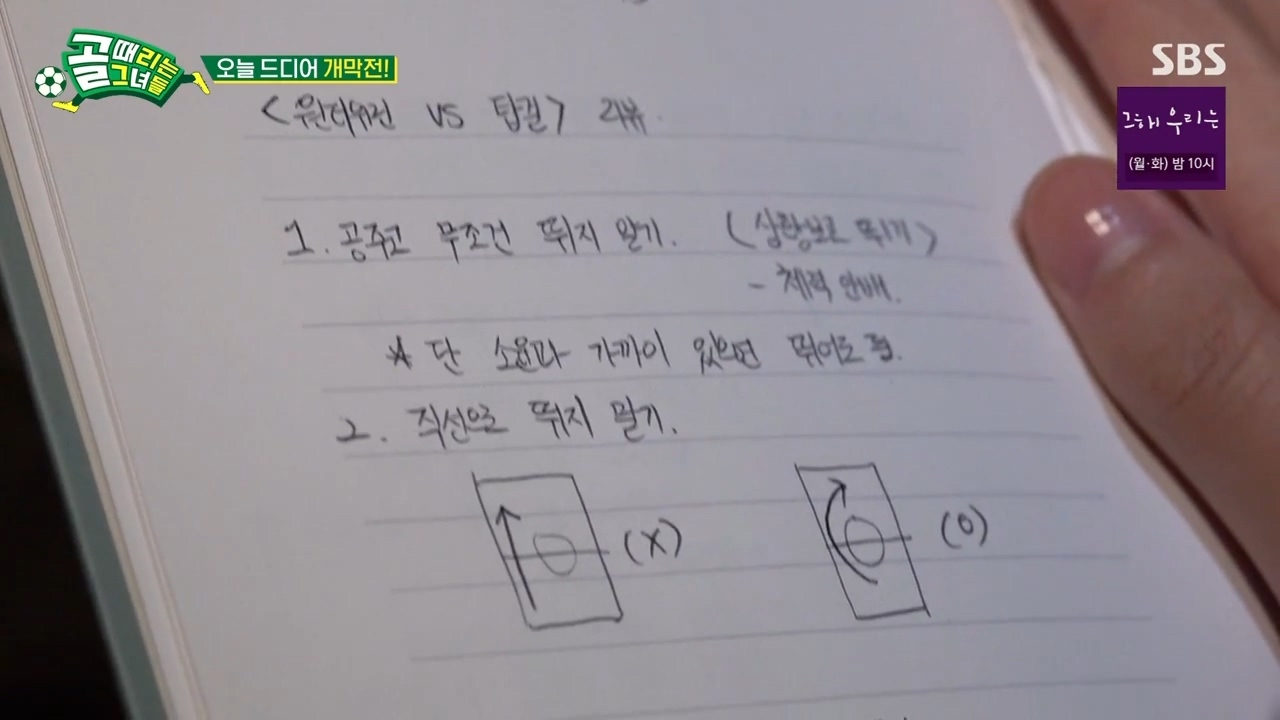 골때리는 그녀들
오늘 드디어 개막전!
SBS
그해 우리는
(월·화) 밤 10시
<원더우먼 VS 탑걸> 리뷰.
1. 공주고 무조건 뛰지 말기. (상황보고 뛰기)
- 체력 안배.
* 단 소윤과 가까이 있으면 뛰어도 됨.
2. 직선으로 뛰지 말기.
(X)
(O)